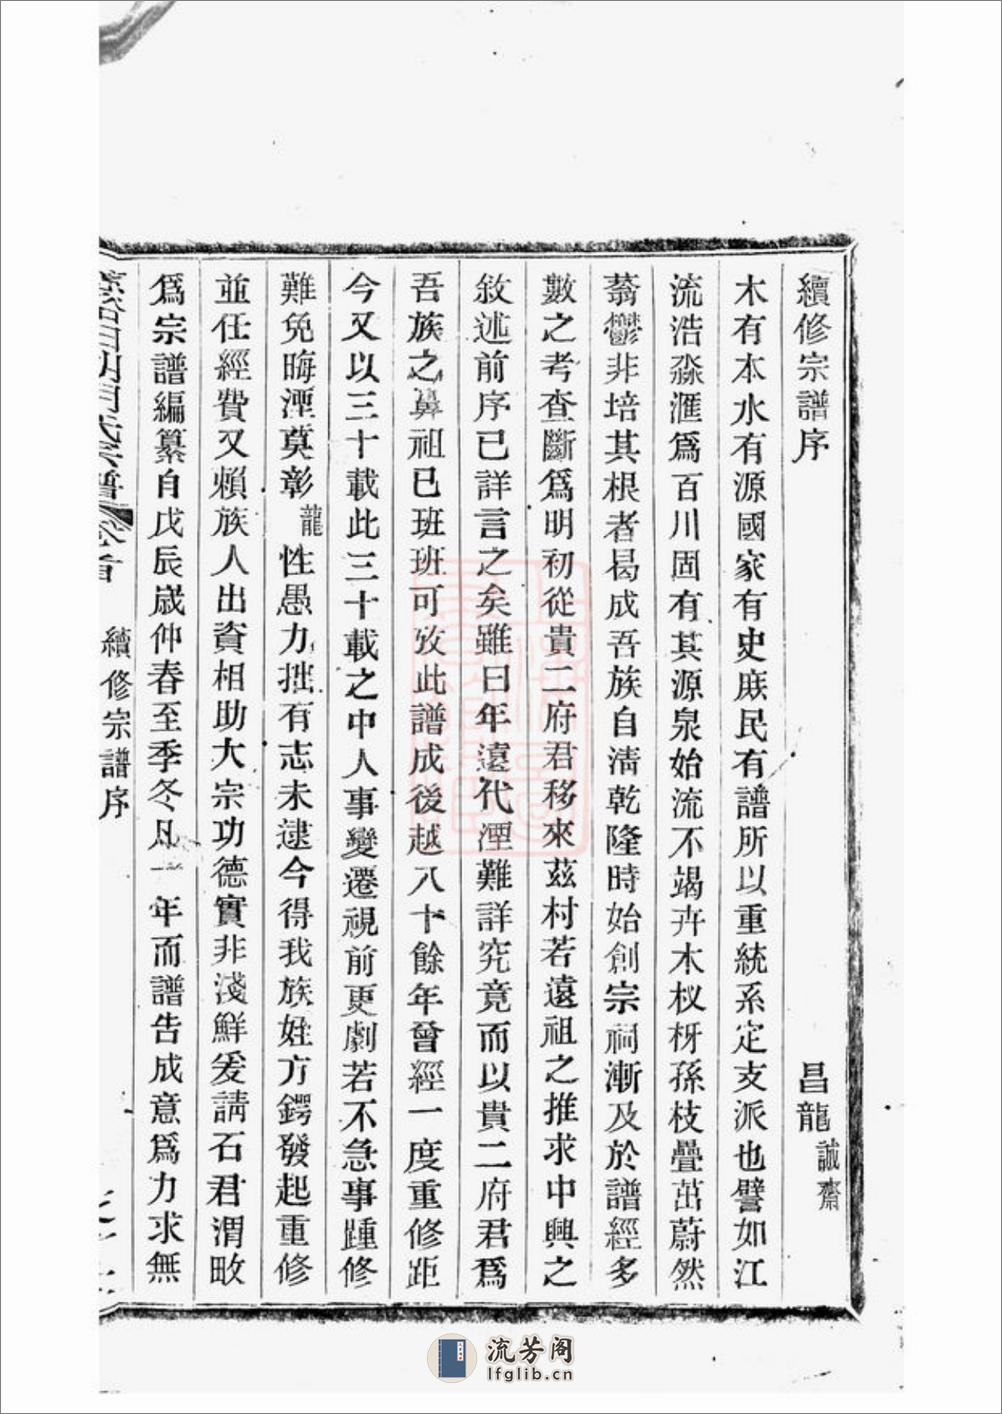 續修宗譜序
昌龍誠齋
木有本水有源國家有史庶民有譜所以重統系定支派也譬如江
流浩淼滙爲百川固有其源泉始流不竭卉木杈枒孫枝疊茁蔚然
蓊鬱非培其根者曷成吾族自清乾隆時始創宗祠漸及於譜經多
數之考查斷爲明初從貴二府君移來茲村若遠祖之推求中興之
敘述前序已詳言之矣雖曰年遠代湮難詳究竟而以貴二府君爲
吾族之鼻祖已班班可攷此譜成後越八十餘年曾經一度重修距
今又以三十載此三十載之中人事變遷視前更劇若不急事踵修
難免晦湮莫彰龍性愚力拙有志未逮今得我族姪方鍔發起重修
並任經費又賴族人出資相助大宗功德實非淺鮮爰請石君渭畋
爲宗譜編纂自戊辰歲仲春至季冬凡一年而譜告成意爲力求無
氏宗譜
卷首
續修宗譜序
流芳阁
lfglib.cn